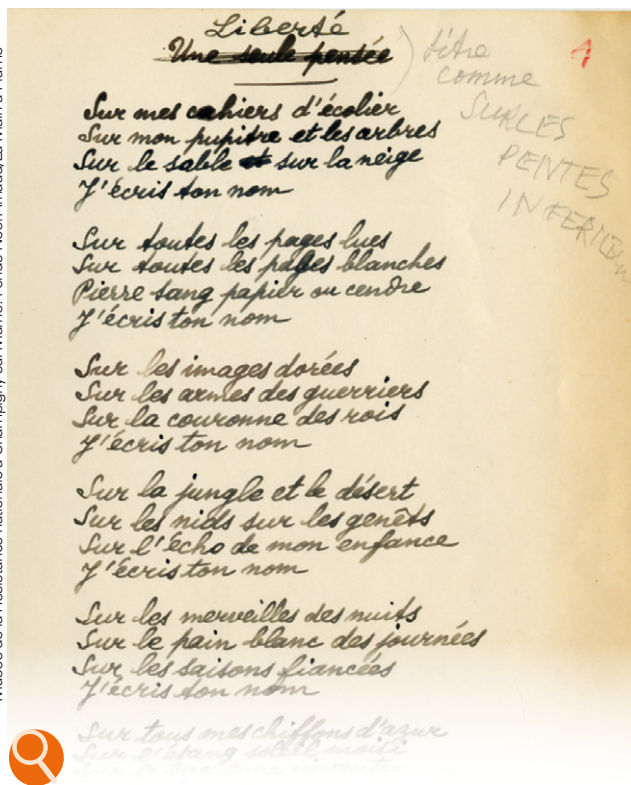 Liberté
Une seule pensée
) titre
comme
SUR LES
PENTES
INFERIEU
Sur mes cahiers d'écolier
Sur mon pupitre et les arbres
Sur le sable et sur la neige
J'écris ton nom
Sur toutes les pages lues
Sur toutes les pages blanches
Pierre sang papier ou cendre
J'écris ton nom
Sur les images dorées
Sur les armes des guerriers
Sur la couronne des rois
J'écris ton nom
Sur la jungle et le désert
Sur les nids sur les genêts
Sur l'écho de mon enfance
J'écris ton nom
Sur les merveilles des nuits
Sur le pain blanc des journées
Sur les saisons fiancées
J'écris ton nom
Sur tous mes chiffons d'azur
Sur l'étang soleil moisi
Sur le lac lune vivante